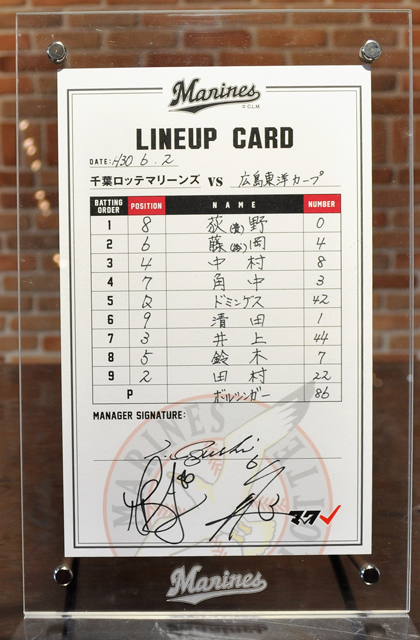 Marines
© C.L.M.
LINEUP CARD
DATE: H30 6. 2
千葉ロッテマリーンズ VS 広島東洋カープ
BATTING ORDER POSITION NAME NUMBER
1 8 荻(貴)野 0
2 6 藤(裕)岡 4
3 4 中村 8
4 7 角中 3
5 D ドミンゲス 42
6 9 清田 1
7 3 井上 44
8 5 鈴木 7
9 2 田村 22
P ボルシンガー 86
MANAGER SIGNATURE:
マク
MARINES
Marines